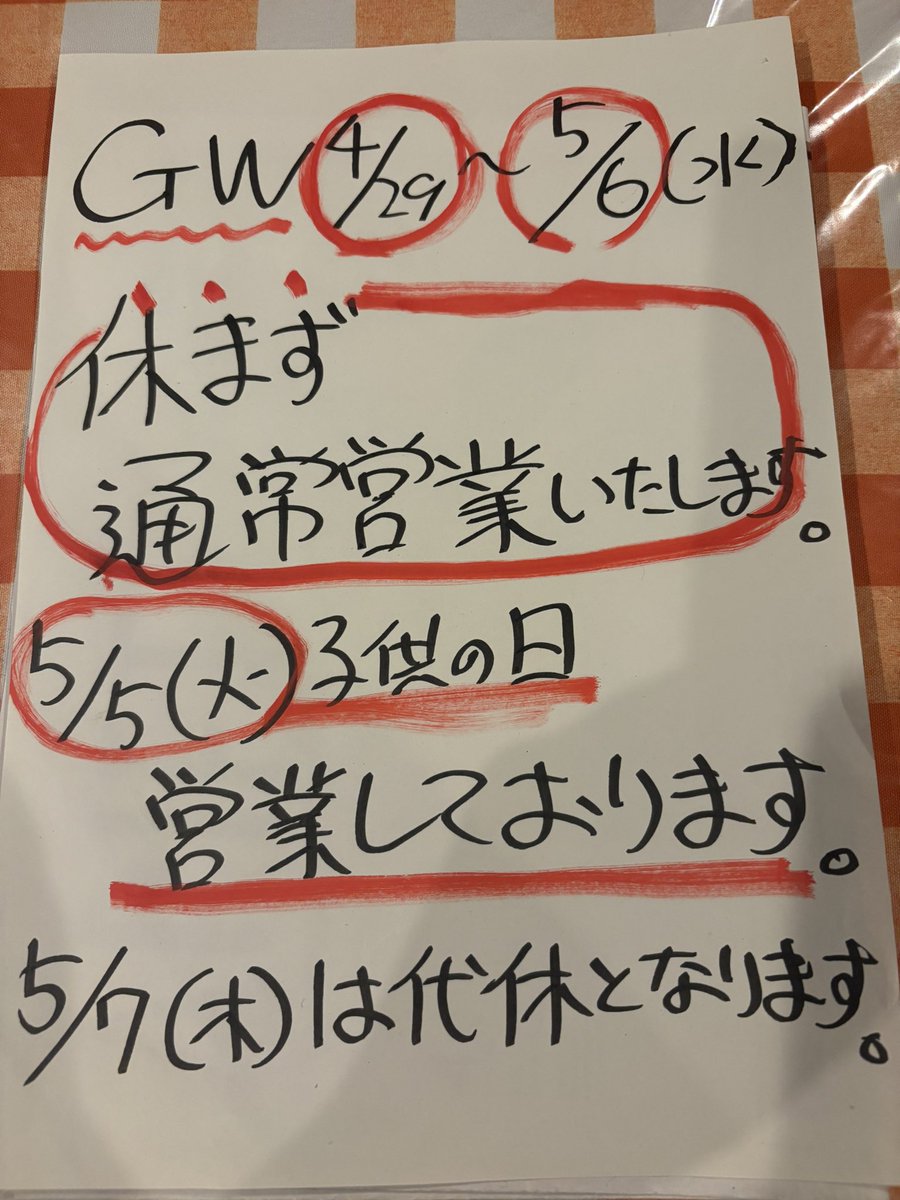 GW 4/29〜5/6(水)
休まず
通常営業いたします。
5/5(火)子供の日
営業しております。
5/7(木)は代休となります。